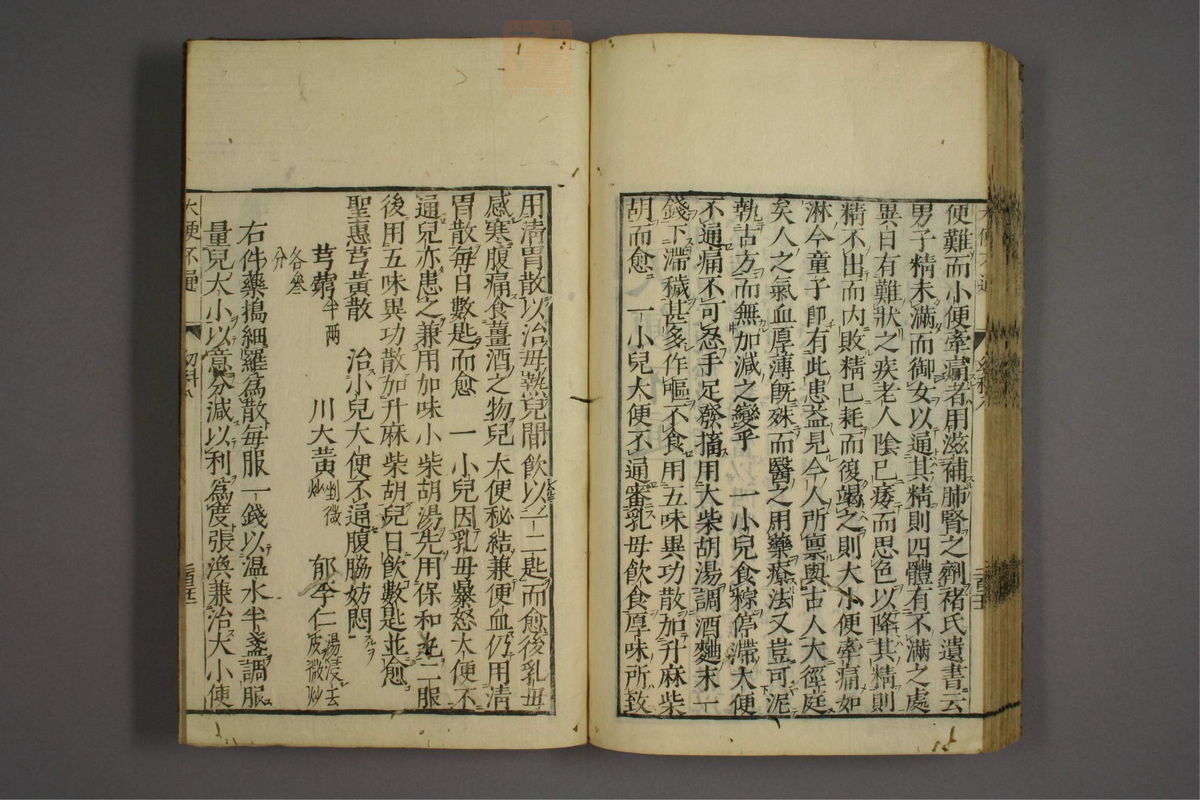 便難而小便牽痛者用滋補肺腎之劑褚氏遺書云
男子精未滿而御女以通其精則四體有不滿之處
異日有難狀之疾老人陰已痿而思色以降其精則
精不出而内敗精已耗而復竭之則大小便牽痛如
淋今童子卽有此患益見今人所禀與古人大徑庭
矣人之氣血厚薄旣殊而醫之用藥療法又豈可泥
執古方而無加減之變乎 一小兒食粽停滯大便
不通痛不可忍手足發搐用大柴胡湯調酒麯末一
錢下滯穢甚多作嘔不食用五味異功散加升麻柴
胡而愈 一小兒大便不通審乳母飲食厚味所致
用清胃散以治母熱兒間飲以一二匙而愈後乳母
感寒腹痛食薑酒之物兒大便秘結兼便血仍用清
胃散每日數匙而愈 一小兒因乳母暴怒大便不
通兒亦患之兼用加味小柴胡湯先用保和丸二服
後用五味異功散加升麻柴胡兒日飲數匙並愈
聖惠芎黃散 治小兒大便不通腹脇妨悶
芎藭半兩 川大黃剉微炒 郁李仁湯浸去皮微炒
各叄分
右件藥擣細羅爲散每服一錢以温水半盞調服
量兒大小以意加減以利爲度張渙兼治大小便
大便不通 幼科八